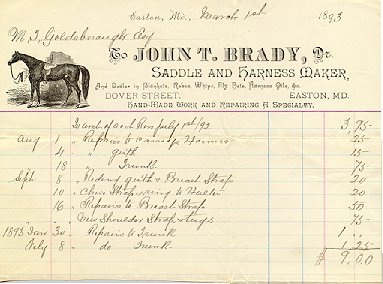 Easton, Md., March 1st 1893
M. T. Goldsborough Esq
To JOHN T. BRADY, Dr.
SADDLE AND HARNESS MAKER,
And Dealer in Blankets, Robes, Whips, Fly Nets, Harness Oils, &c.
DOVER STREET. EASTON, MD.
HAND-MADE WORK AND REPAIRING A SPECIALTY.
To amt of acct July 1st /92 3,75
Aug 1 " Repairs to Harness 25
4 " " girth 25
18 " " Trunk 75
Sept 8 " girth & Breast Strap 20
10 " Chin Strap & ring to Halter 20
16 " Repairs to Breast Strap 50
" New Shoulder Strap & tugs 75
1893 Jan 30 Repairs to Trunk 1 "
Feby 8 " do Trunk 1 25
$ 9.00